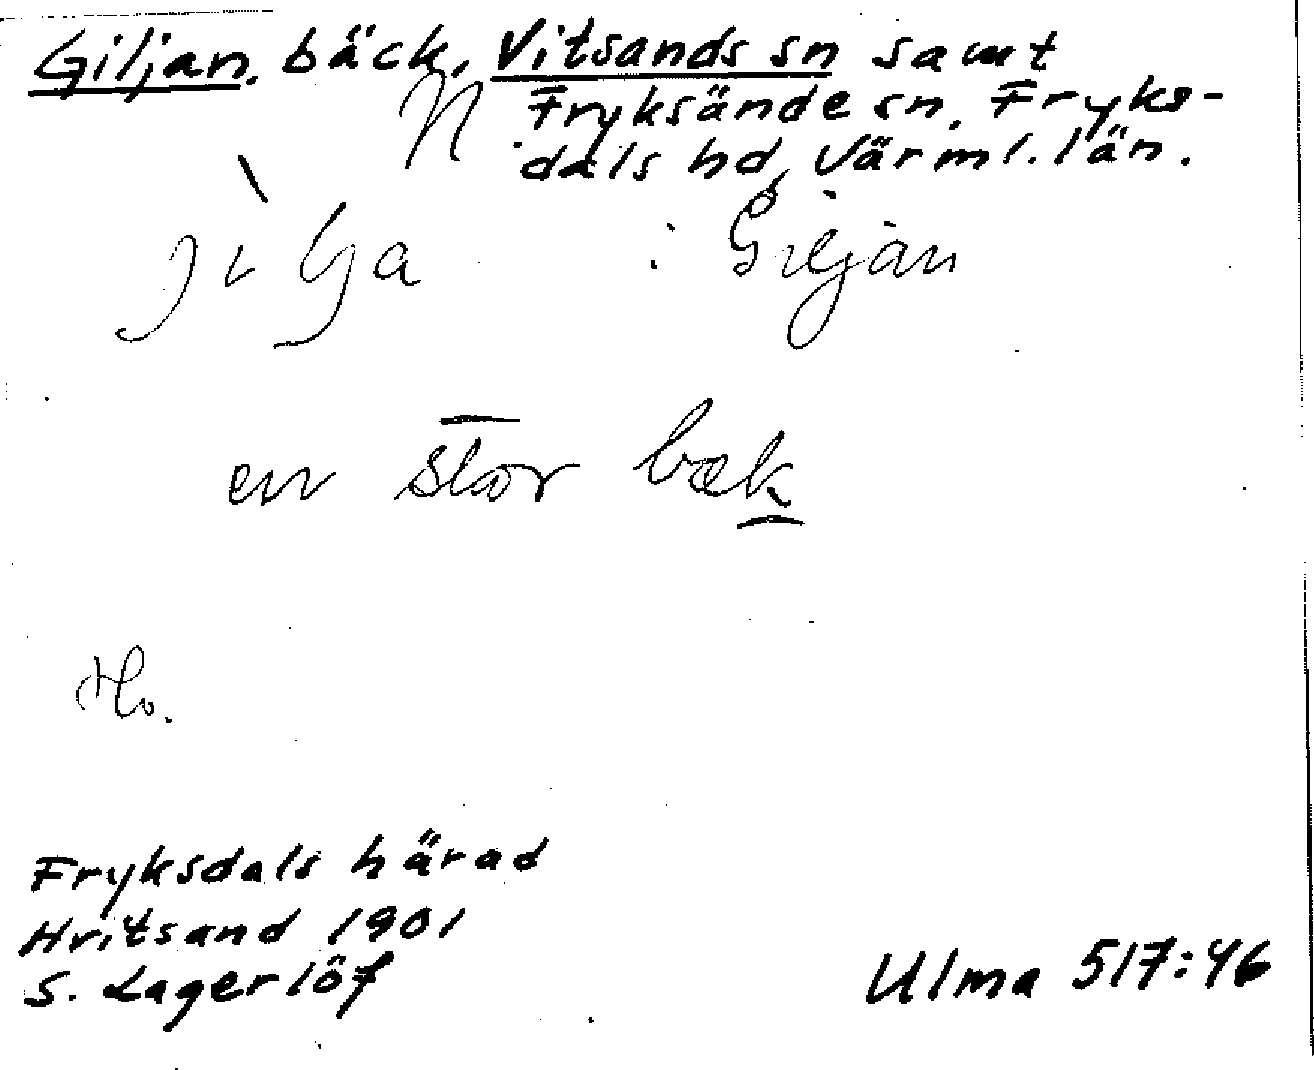 Giljan, bäck, Vitsands sn samt
N Fryksände sn, Fryks-
dals hd, Värml. län.
jìlja : i Giljan
en stor bæk
Ho.
Fryksdals härad
Hvitsand 1901
S. Lagerlöf
Ulma 517:46